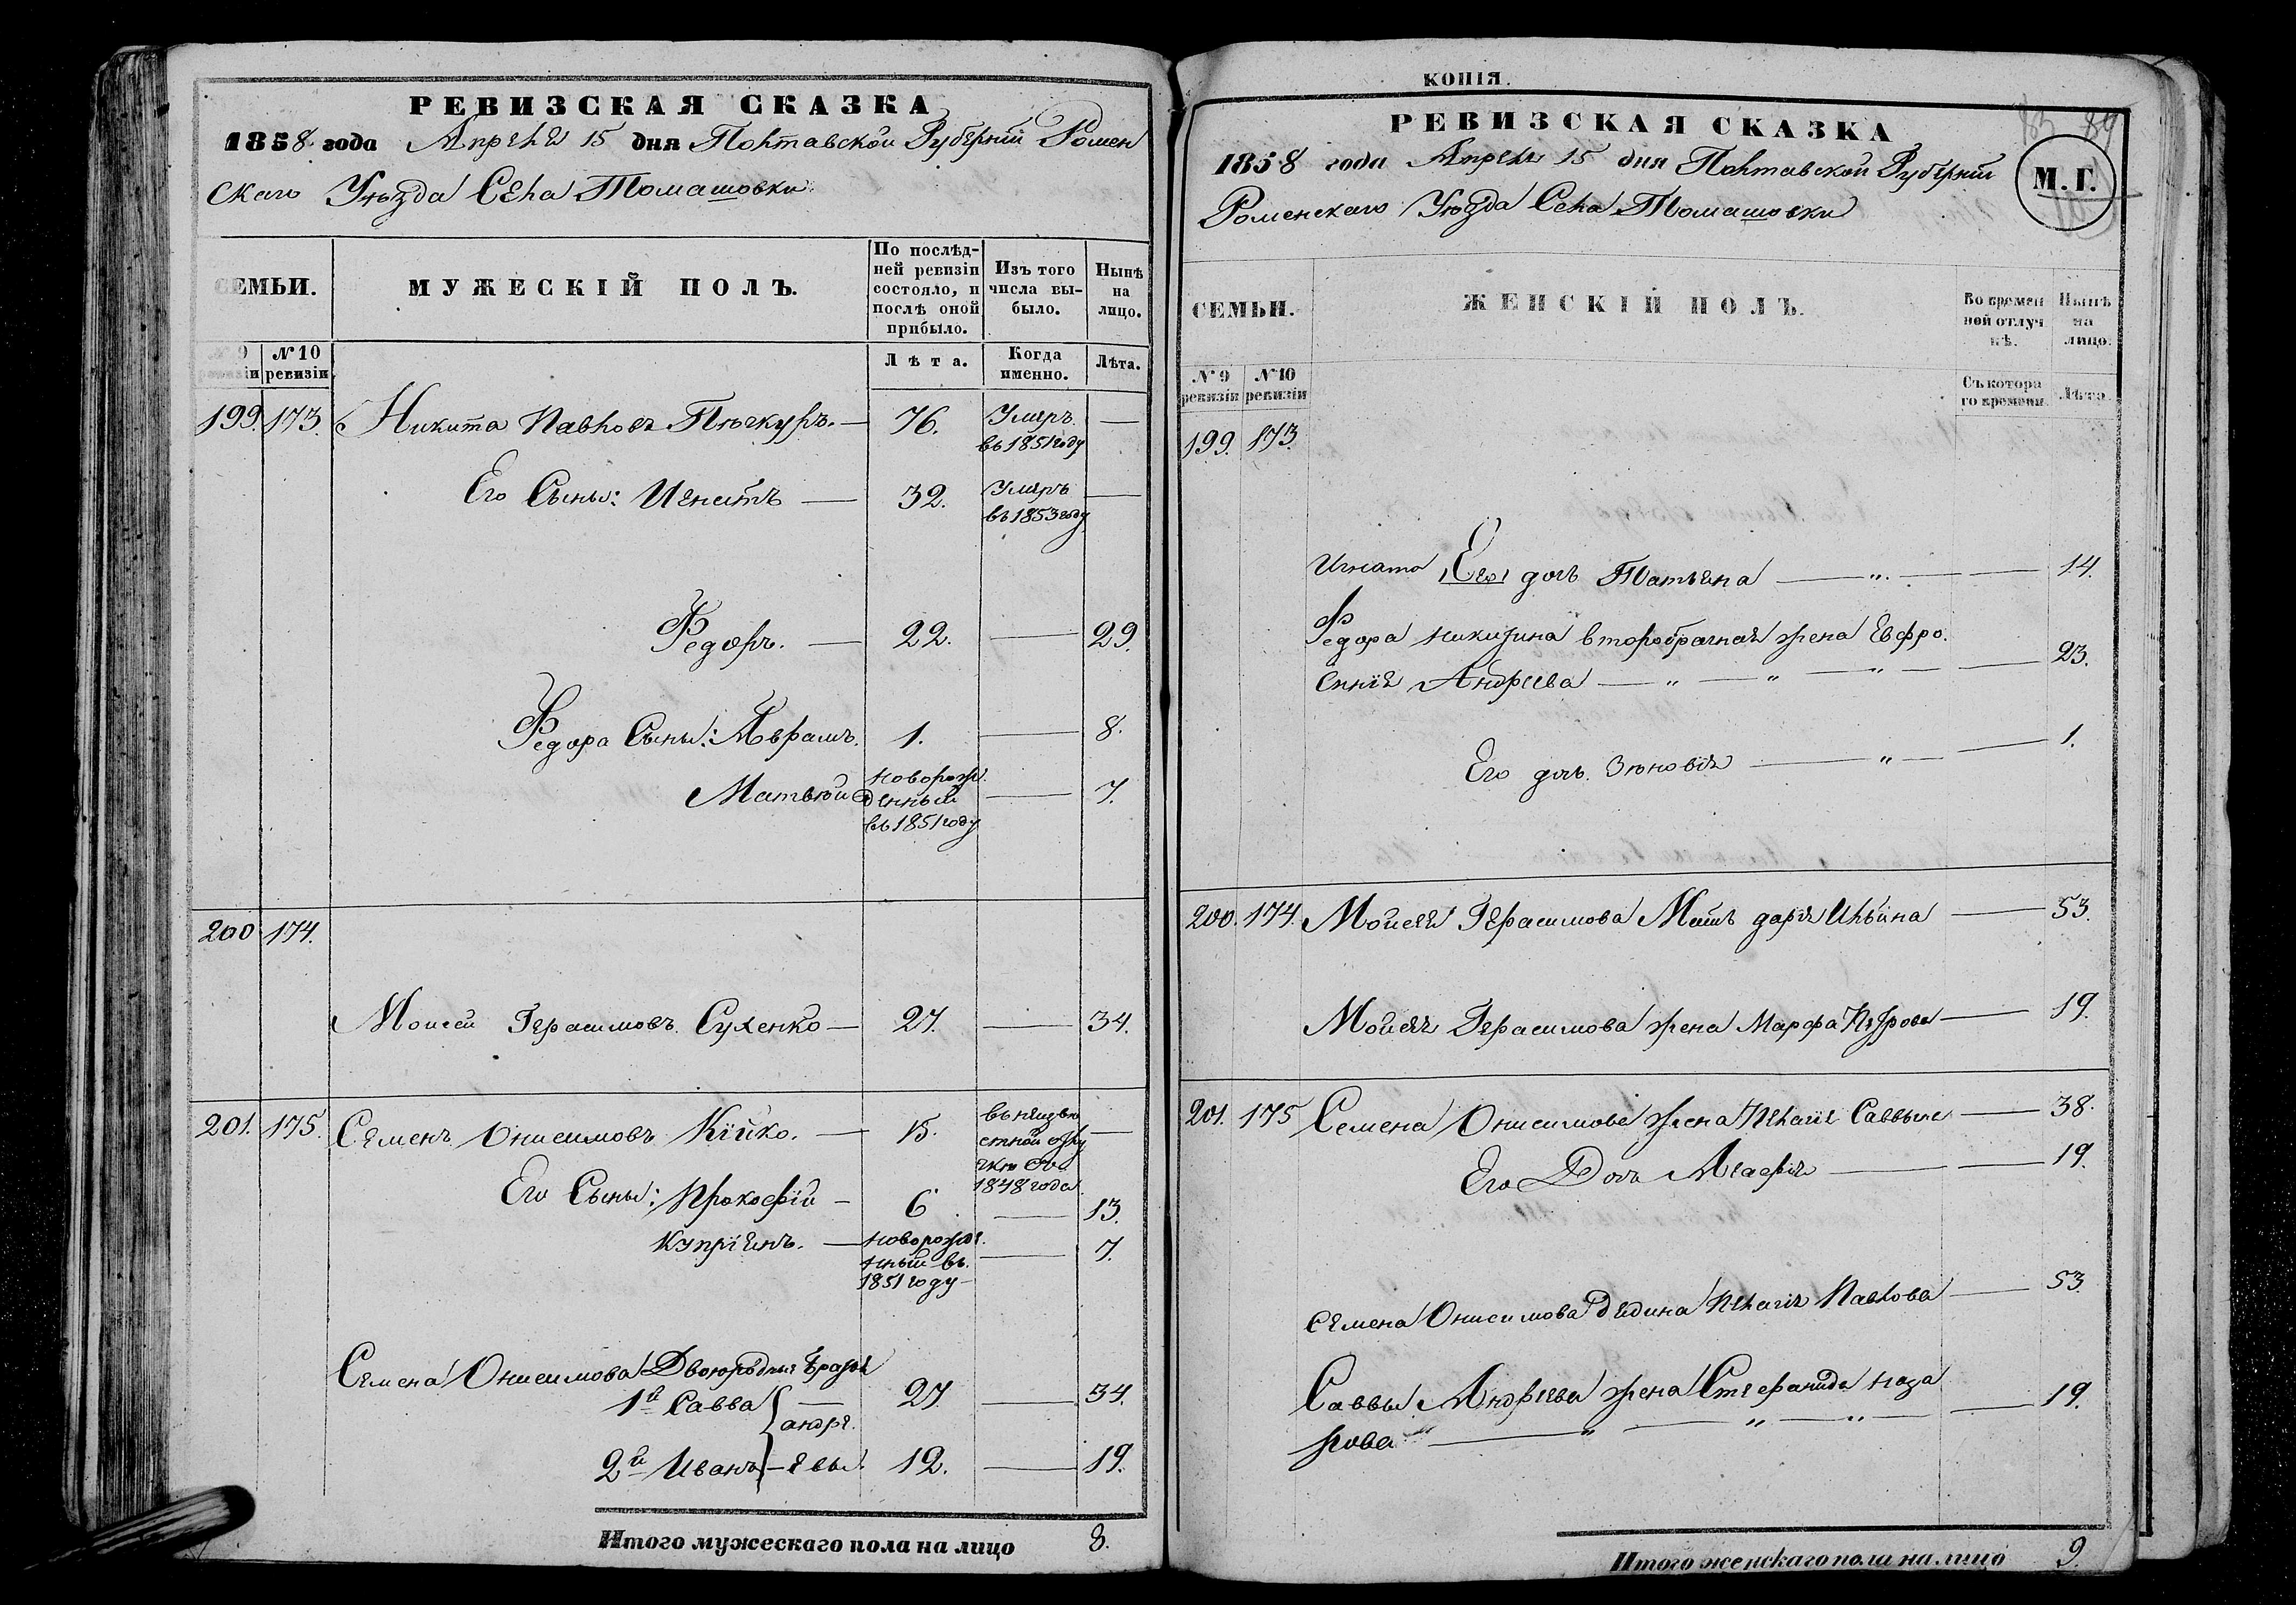 РЕВИЗСКАЯ СКАЗКА
1858 года Апреля 15 дня Полтавской Губерніи Ромен
скаго Уѣзда Села Томашовки
СЕМЬИ.
МУЖЕСКІЙ ПОЛЪ.
По послѣд-
ней ревизіи
состояло, и
послѣ оной
прибыло.
Изъ того
числа вы-
было.
Нынѣ
на
лицо.
№ 9
ревизіи
№ 10
ревизіи.
Лѣта.
Когда
именно.
Лѣта.
199. 173. Никита Павловъ Пѣчкуръ. — 76. Умеръ въ 1851 году —
Его Сыны: Игнатъ — 32. Умеръ въ 1853 году —
Федоръ. — 22. — 29.
Федора Сыны: Аврамъ. 1. — 8.
Матвѣй новорож
денный — 7.
въ 1851 году
200 174.
Моисей Герасимовъ Сухенко — 27. — 34.
201. 175. Семенъ Онисимовъ Кійко. — 15. въ неизвѣ
стной отлу
чкѣ съ
1848 года —
Его Сыны: Прокофій — 6 — 13.
Купріянъ. — новорожде
нный въ — 7.
1851 году
Семена Онисимова Двоюродные Братья
1й Савва { андре. 27. — 34.
2й Иванъ } — евы. 12. — 19.
Итого мужескаго пола на лицо 8.
КОПІЯ.
РЕВИЗСКАЯ СКАЗКА
1858 года Апреля 15 дня Полтавской Губерніи
Роменскаго Уѣзда Села Томашовки
М. Г.
СЕМЬИ.
ЖЕНСКІЙ ПОЛЪ.
Во времен
ной отлуч
кѣ.
Нынѣ
на
лицо.
№ 9
ревизіи
№ 10
ревизіи
Съ котора
го времени.
Лѣта.
199. 173.
Игната Его дочь Татьяна — " — 14.
Федора Никитина второбрачная жена Евфро.
синія Андреева — " — " — " — 23.
Его дочь Зѣновія — " — 1.
200. 174. Моисея Герасимова Мать дарія Ильина — 53.
Моисея Герасимова жена Марфа Петрова — 19.
201. 175 Семена Онисимова жена Пелагія Саввина — 38.
Его Дочь Агафія — 19.
Семена Онисимова дядина Пелагія Павлова — 53.
Саввы Андреева жена Стефанида Наза
рова — " — " — " — 19.
Итого женскаго пола на лицо 9.